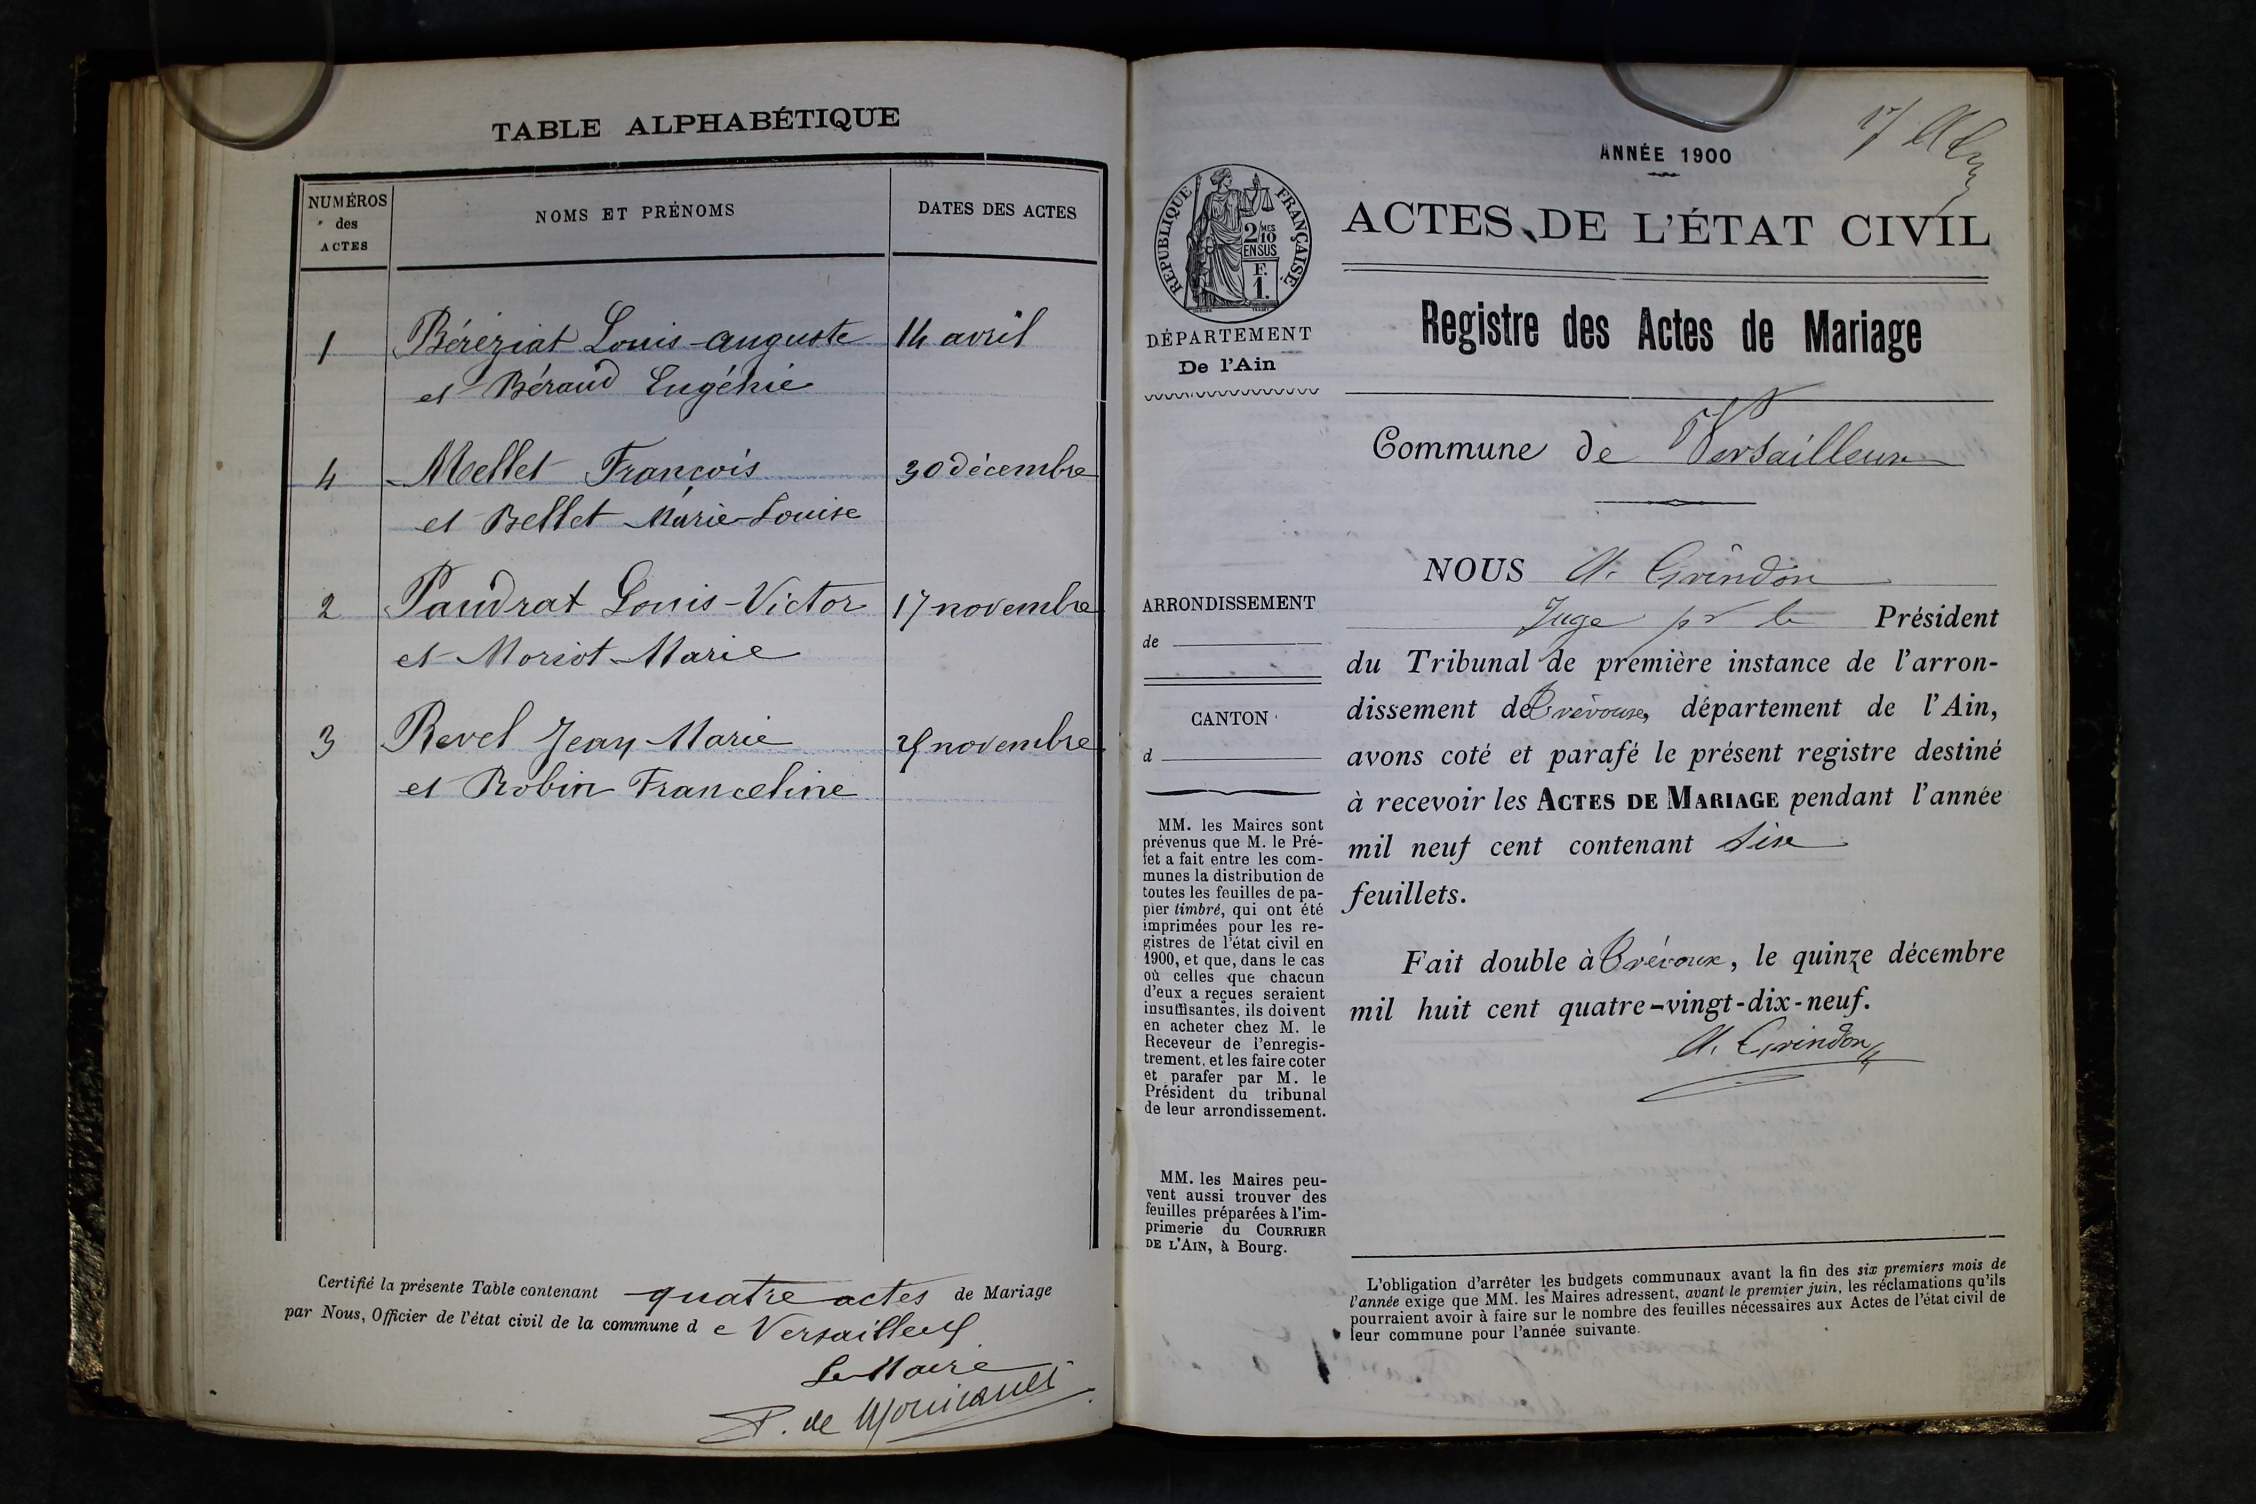 TABLE ALPHABÉTIQUE
NUMÉROS
des
ACTES
NOMS ET PRÉNOMS
DATES DES ACTES
1 Béréziat Louis-auguste 14 avril
et Béraud Eugénie
4 Mellet François 30 décembre
et Bellet Marie-Louise
2 Paudrat Louis-Victor 17 novembre
et Moriot Marie
3 Revel Jean Marie novembre
et Robin Franceline
Certifié la présente Table contenant quatre actes de Mariage
par Nous, Officier de l'état civil de la commune d e Versailleux
Le Maire
P. de
ANNÉE 1900
RÉPUBLIQUE FRANÇAISE
2/10 MES
EN SUS
F.
1.
DÉPARTEMENT
De l'Ain
ARRONDISSEMENT
de
CANTON
d
MM. les Maires sont
prévenus que M. le Pré-
fet a fait entre les com-
munes la distribution de
toutes les feuilles de pa-
pier timbré, qui ont été
imprimées pour les re-
gistres de l'état civil en
1900, et que, dans le cas
où celles que chacun
d'eux a reçues seraient
insuffisantes, ils doivent
en acheter chez M. le
Receveur de l'enregis-
trement, et les faire coter
et parafer par M. le
Président du tribunal
de leur arrondissement.
MM. les Maires peu-
vent aussi trouver des
feuilles préparées à l'im-
primerie du COURRIER
DE L'AIN, à Bourg.
ACTES DE L'ÉTAT CIVIL
Registre des Actes de Mariage
Commune de Versailleux
NOUS A. Grindon
Juge pr le Président
du Tribunal de première instance de l'arron-
dissement de Trévoux, département de l'Ain,
avons coté et parafé le présent registre destiné
à recevoir les ACTES DE MARIAGE pendant l'année
mil neuf cent contenant six
feuillets.
Fait double à Trévoux, le quinze décembre
mil huit cent quatre-vingt-dix-neuf.
A. Grindon
L'obligation d'arrêter les budgets communaux avant la fin des six premiers mois de
l'année exige que MM. les Maires adressent, avant le premier juin, les réclamations qu'ils
pourraient avoir à faire sur le nombre des feuilles nécessaires aux Actes de l'état civil de
leur commune pour l'année suivante.